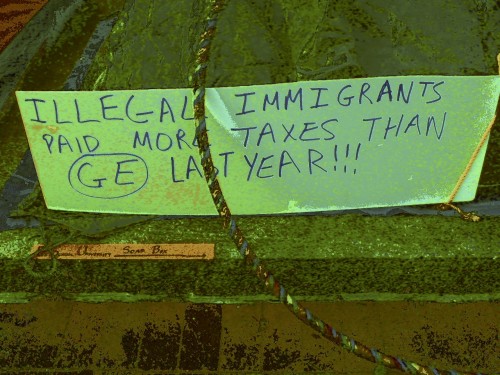 ILLEGAL IMMIGRANTS
PAID MORE TAXES THAN
GE LAST YEAR!!!